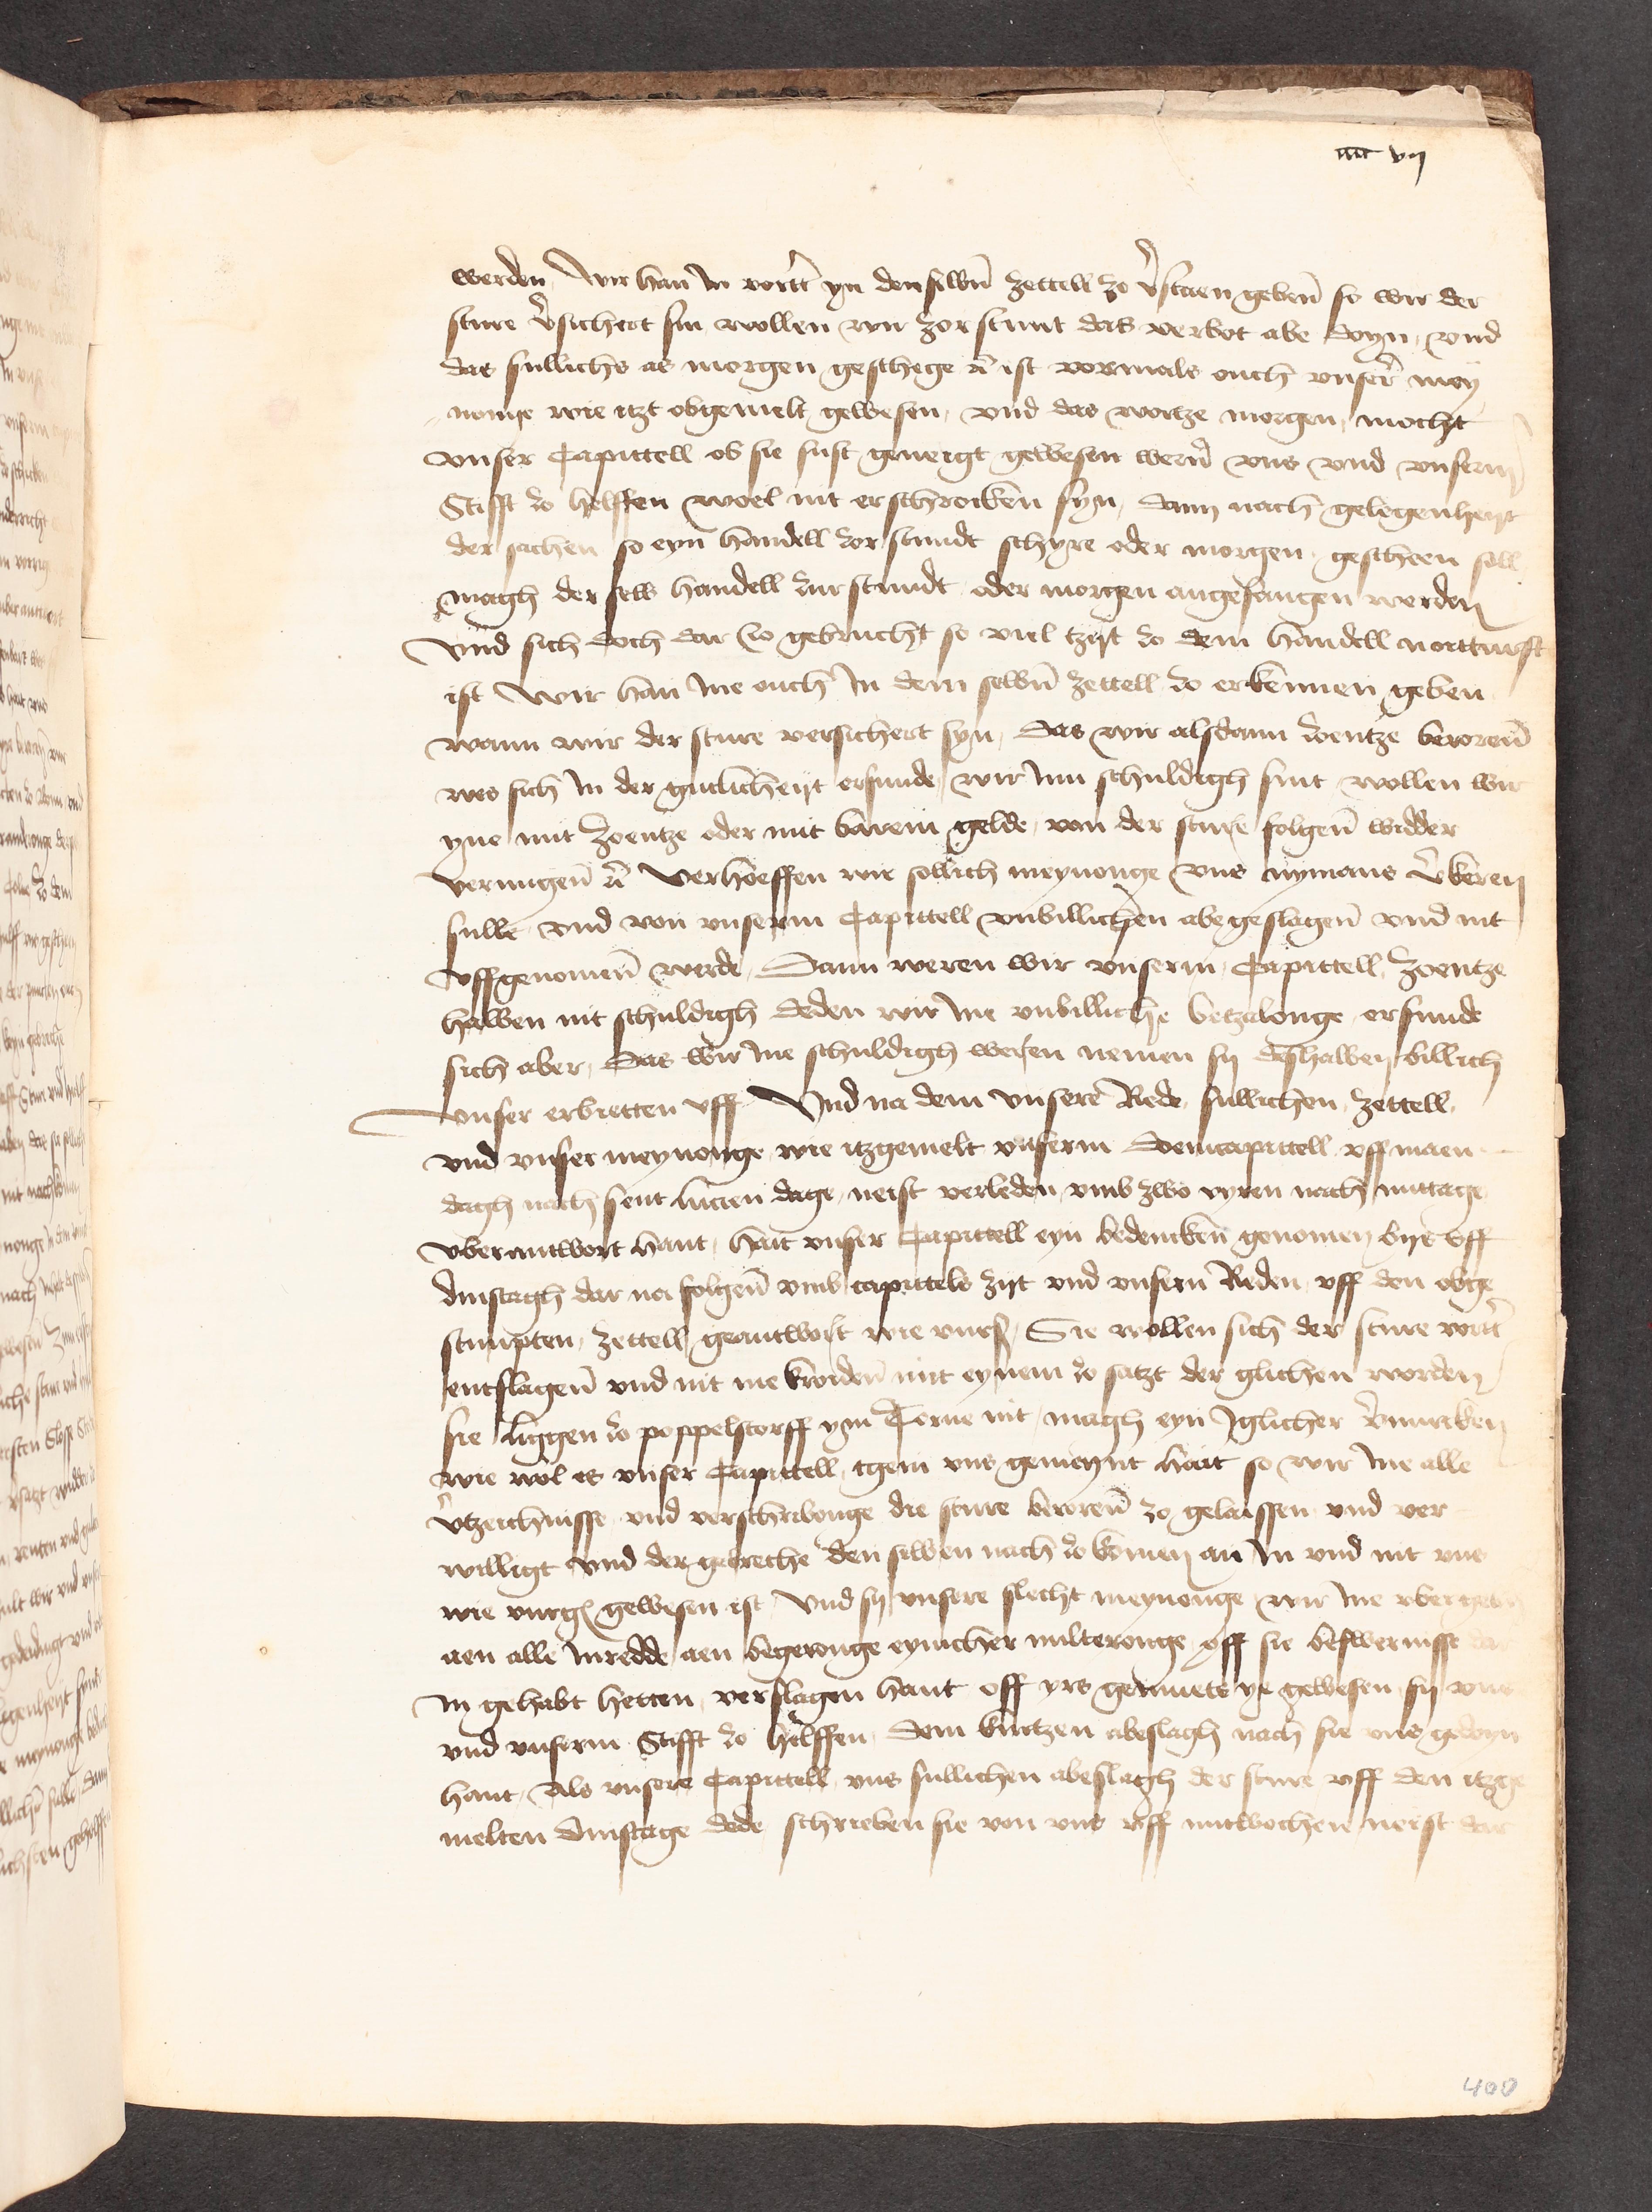 vij
werden, Wir han In vortt yn denselwn̄ zettell zo v̄staen geben̄ so wir der
sture v̄sichert sin wollen wir zor stunt das verbot abe doyn, vnd
das sullichs as morgen geschege r̄ ist vormals ouch vnser̄ mey
nonge wie itzt obgemelt gewesen, vnd das wortze morgen, mocht
vnser Capittell ob sie sust geneigt gewesen wern̄ vns vnd vnserm
Stifft zo helffen woel nit erschrocken syn, dann nach gelegenheyt
der sachen so eyn handell zor stundt schyre oder morgen gescheen soll
magh der selb handell zur stundt oder morgen angefangen werden
Vnd sich doch dar zo gebrucht so viel tzyt zo dem handell nottturfft
ist Wir han Ine ouch In dem selwn̄ zettell zo erkennen geben
wann wir der sture versichert syn, Das wir alsdann zoentze beroren̄
wes sich In der gutlicheyt erfunde, wir Inn schuldigh sint wollen wir
yne mit zoentze oder mit barem gelde, von der sture folgen̄ widder
vernugen̄ r̄ Verhoeffen wir sollich meynonge vns nymans v̄keren
sulle vnd von vnserm Capittell vnbillichen abegeslagen̄ vnd nit
vffgenomen̄ werde, Dann weren wir vnserm Capittell zoentze
halben nit schuldigh deden wir Ine vnbilliche betzalonge erfunde
sich aber, Das wir Ine schuldigh weren nemen sy deshalben billich
vnser erbietten vff Vnd na dem vnsere Rede sullichen zettell
vnd vnser meynonge wie itzgemelt vnserm Domcapittell vff maen
dagh nach sent lucien dage neist verleden, vmb zwo vyren nach mittage
vberantwort hant, hait vnser Capittell eyn bedencken̄ genomen byß vff
dinstagh dar na folgen̄ vmb capittels zyt vnd vnsern Reden vff den obge
stimpten zettell geantwort wie vurß, Sie wollen sich der sture
entslagen̄ vnd nit me kroiden̄ mit eynem zo satzt der glichen worden
sie liggen zo poppelstorff ym Torne nit, magh eyn Iglicher v̄mircken
wie wol es vnser Capittell, tgein vns gemeynt hait so wir Ine alle
v̄tzeichnisse vnd verschribonge die sture beroren̄ zo gelaissen vnd ver
willigt vnd der gebreche denselben nach zo komen an In vnd nit vns
wie vurgeß gewesen ist, Vnd sy vnsere slecht meynonge wir Ine vbergeben
aen alle Inredde aen begeronge eynicher milteronge off sie beswernisse
In gehabt hetten, verslagen hant off yrs gemuets ye gewesen sy vns
vnd vnserm Stifft zo helffen, Dem kurtzen abeslagh nach sie vns gedoyn
hant, Als vnsere Capittell vns sullichen abeslagh der sture vff den itzge
melten dinstage dede schrieben sie von vns vff mitwochen neist dar
400